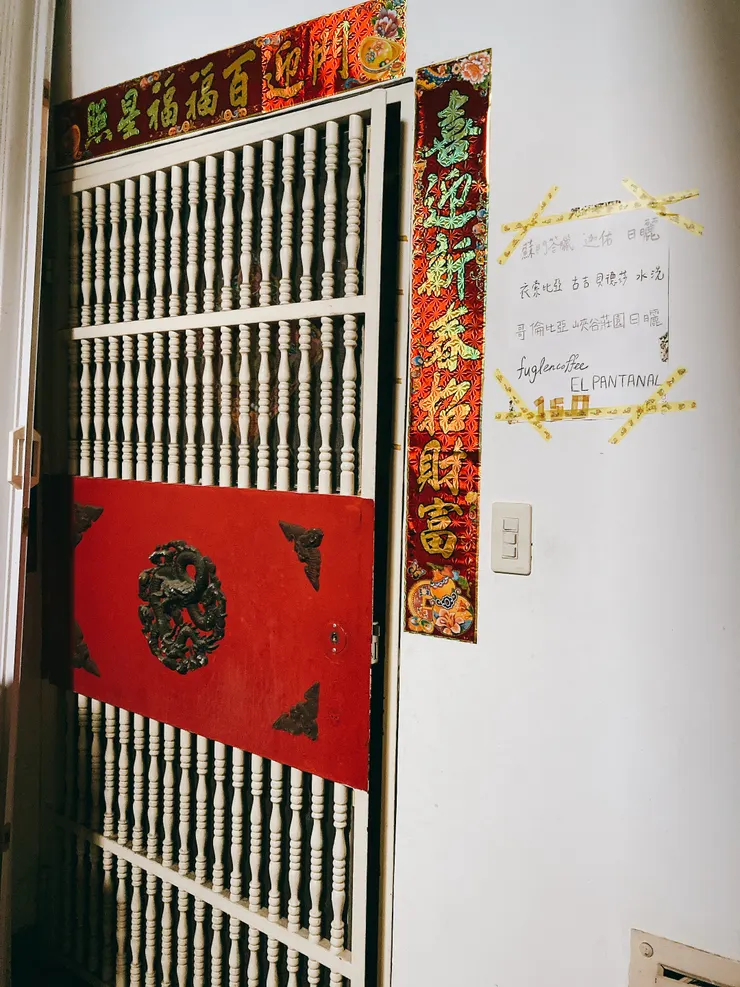 門迎百福福星照
喜迎新春招財富
蘇門答臘 迦佑 日曬
衣索比亞 古吉 貝德莎 水洗
哥倫比亞 峽谷莊園 日曬
fuglencoffee
EL PANTANAL
150